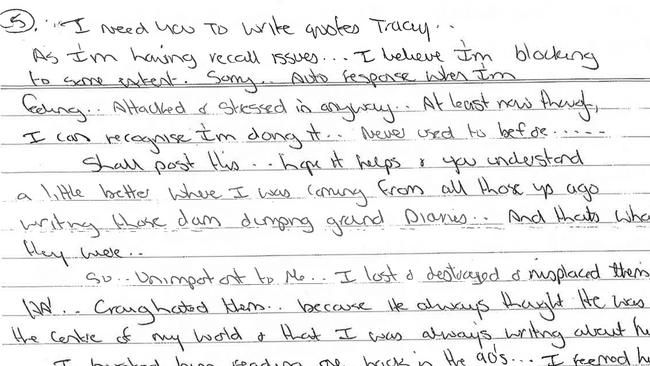 (5). I need you to write quotes Tracey..
As I'm having recall issues... I believe I'm blocking
to some extent. Sorry.. Auto response when I'm
feeling.. Attacked & stressed in anyway.. At least now though,
I can recognise I'm doing it.. Never used to before.....
Shall post this.. hope it helps & you understand
a little better where I was coming from all those yrs ago
writing those dam dumping ground Diaries.. And thats wha
they were..
So.. Unimportant to Me... I lost & destroyed & misplaced them
Craig hated them.. because He always thought He was
the centre of my world & that I was always writing about
back in the 90's... I